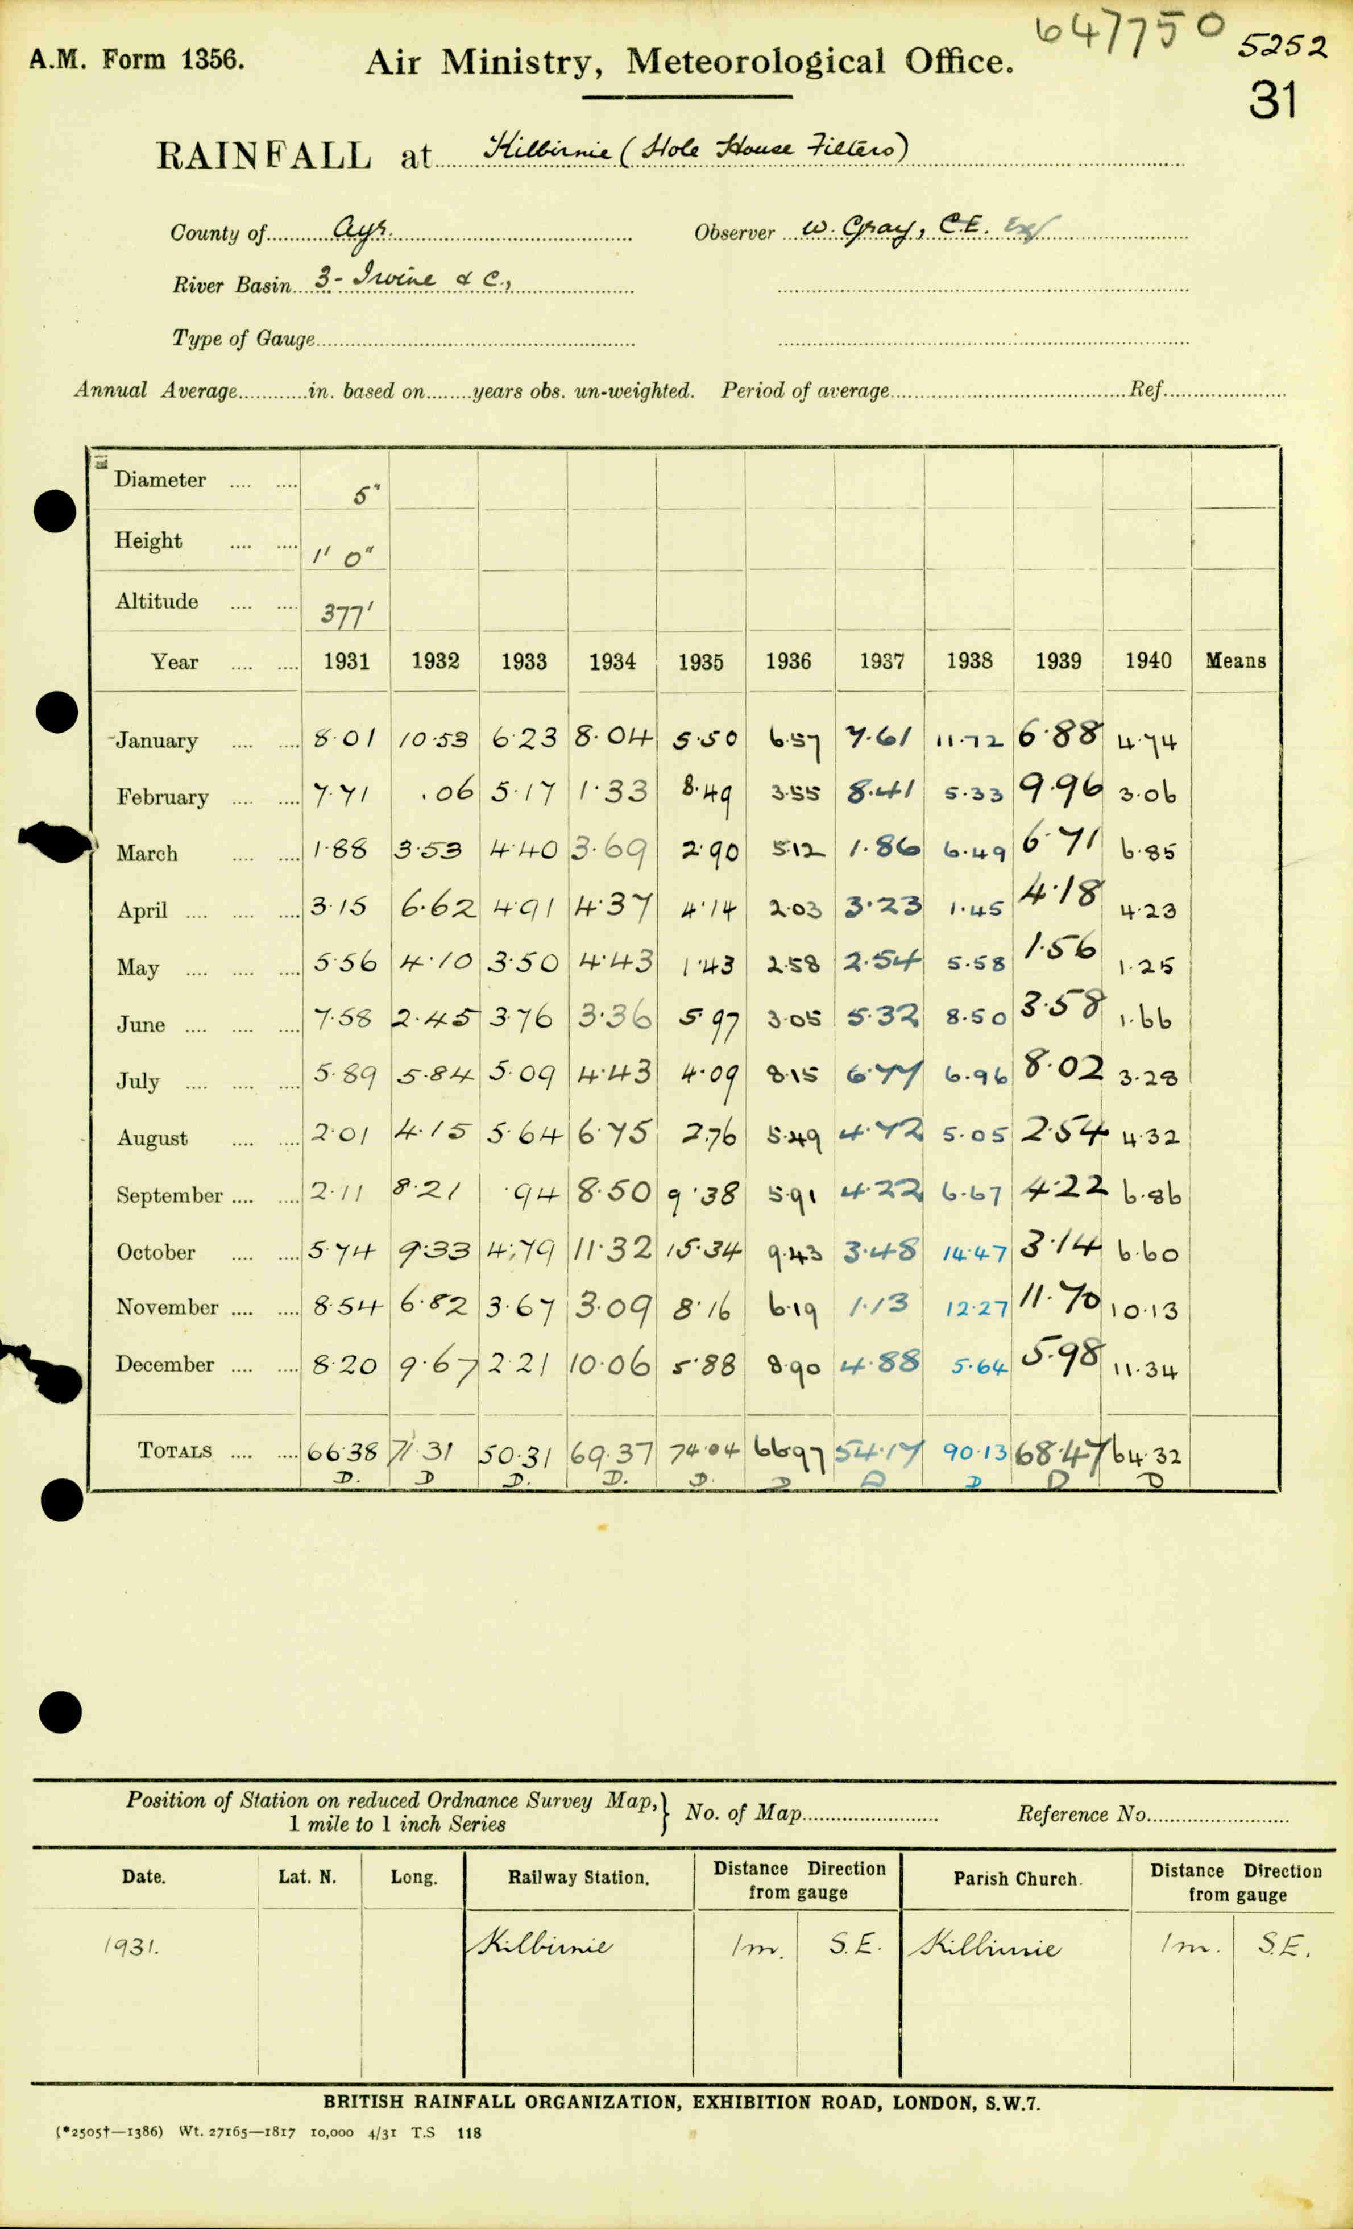 647750
5252
A.M. Form 1356. Air Ministry, Meteorological Office.
31
RAINFALL at Kilbirnie (Hole House Filters)
County of Ayr. Observer W. Gray, C.E.
River Basin 3- Irvine & C.,
Type of Gauge
Annual Average in. based on years obs. un-weighted. Period of average Ref.
Diameter 5"
Height 1' 0"
Altitude 377'
Year 1931 1932 1933 1934 1935 1936 1937 1938 1939 1940 Means
January 8.01 10.53 6.23 8.04 5.50 6.57 7.61 11.72 6.88 4.74
February 7.71 .06 5.17 1.33 8.49 3.55 8.41 5.33 9.96 3.06
March 1.88 3.53 4.40 3.69 2.90 5.12 1.86 6.49 6.71 6.85
April 3.15 6.62 4.91 4.37 4.14 2.03 3.23 1.45 4.18 4.23
May 5.56 4.10 3.50 4.43 1.43 2.58 2.54 5.58 1.56 1.25
June 7.58 2.45 3.76 3.36 5.97 3.05 5.32 8.50 3.58 1.66
July 5.89 5.84 5.09 4.43 4.09 8.15 6.77 6.96 8.02 3.28
August 2.01 4.15 5.64 6.75 2.76 5.49 4.72 5.05 2.54 4.32
September 2.11 8.21 .94 8.50 9.38 5.91 4.22 6.67 4.22 6.86
October 5.74 9.33 4.79 11.32 15.34 9.43 3.48 14.47 3.14 6.60
November 8.54 6.82 3.67 3.09 8.16 6.19 1.13 12.27 11.70 10.13
December 8.20 9.67 2.21 10.06 5.88 8.90 4.88 5.64 5.98 11.34
TOTALS 66.38 71.31 50.31 69.37 74.04 66.97 54.17 90.13 68.47 64.32
D. D D. D. D. D D D D D
Position of Station on reduced Ordnance Survey Map, } No. of Map Reference No.
1 mile to 1 inch Series
Date. Lat. N. Long. Railway Station. Distance Direction from gauge Parish Church. Distance Direction from gauge
1931. Kilbirnie 1m. S.E. Kilbirnie 1m. S.E.
BRITISH RAINFALL ORGANIZATION, EXHIBITION ROAD, LONDON, S.W.7.
(*2505†—1386) Wt. 27165—1817 10,000 4/31 T.S 118